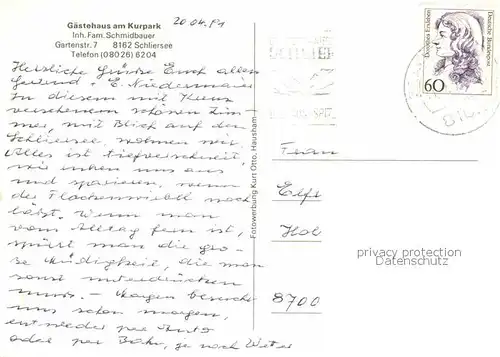 Gästehaus am Kurpark
Inh. Fam. Schmidbauer
Gartenstr. 7 8162 Schliersee
Telefon (080 26) 6204
20.04.91
Herzliche Grüße Euch allen
E. Niedermaier
In diesem mit Kreuz
versehenem schönen Zim-
mer, mit Blick auf den
Schliersee wohnen wir.
Alles ist tiefverschneit,
wir ruhen uns aus
und spazieren, wenn
der Flockenwirbel nach
läßt. Wenn man
vom Alltag fern ist,
spürt man die gro-
ße Müdigkeit, die man
sonst unterdrücken
muss. – Morgen besuche
uns schon morgen,
entweder per Auto
oder per Bahn, je nach Wetter
Fotowerbung Kurt Otto, Hausham
Dorothea Erxleben
Deutsche Bundespost
60
Frau
Hol
8700
privacy protection
Datenschutz